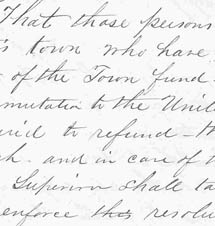 That those persons
's town who have
of the Town fund
mutation to the Unit
uid to refund - th
h. and in case of t
Superior shall ta
enforce this resolu